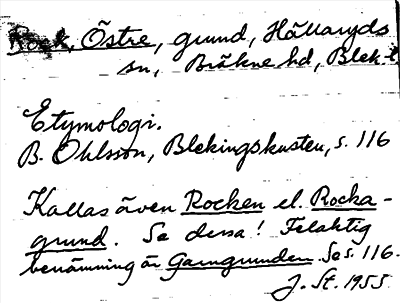 Rock, Östre, grund, Hällaryds
sn, Bräkne hd, Blek. l.
Etymologi.
B. Ohlsson, Blekingskusten, s. 116
Kallas även Rocken el. Rocka-
grund. Se dessa! Felaktig
benämning är Garngrunden. Se s. 116.
J. St. 1955